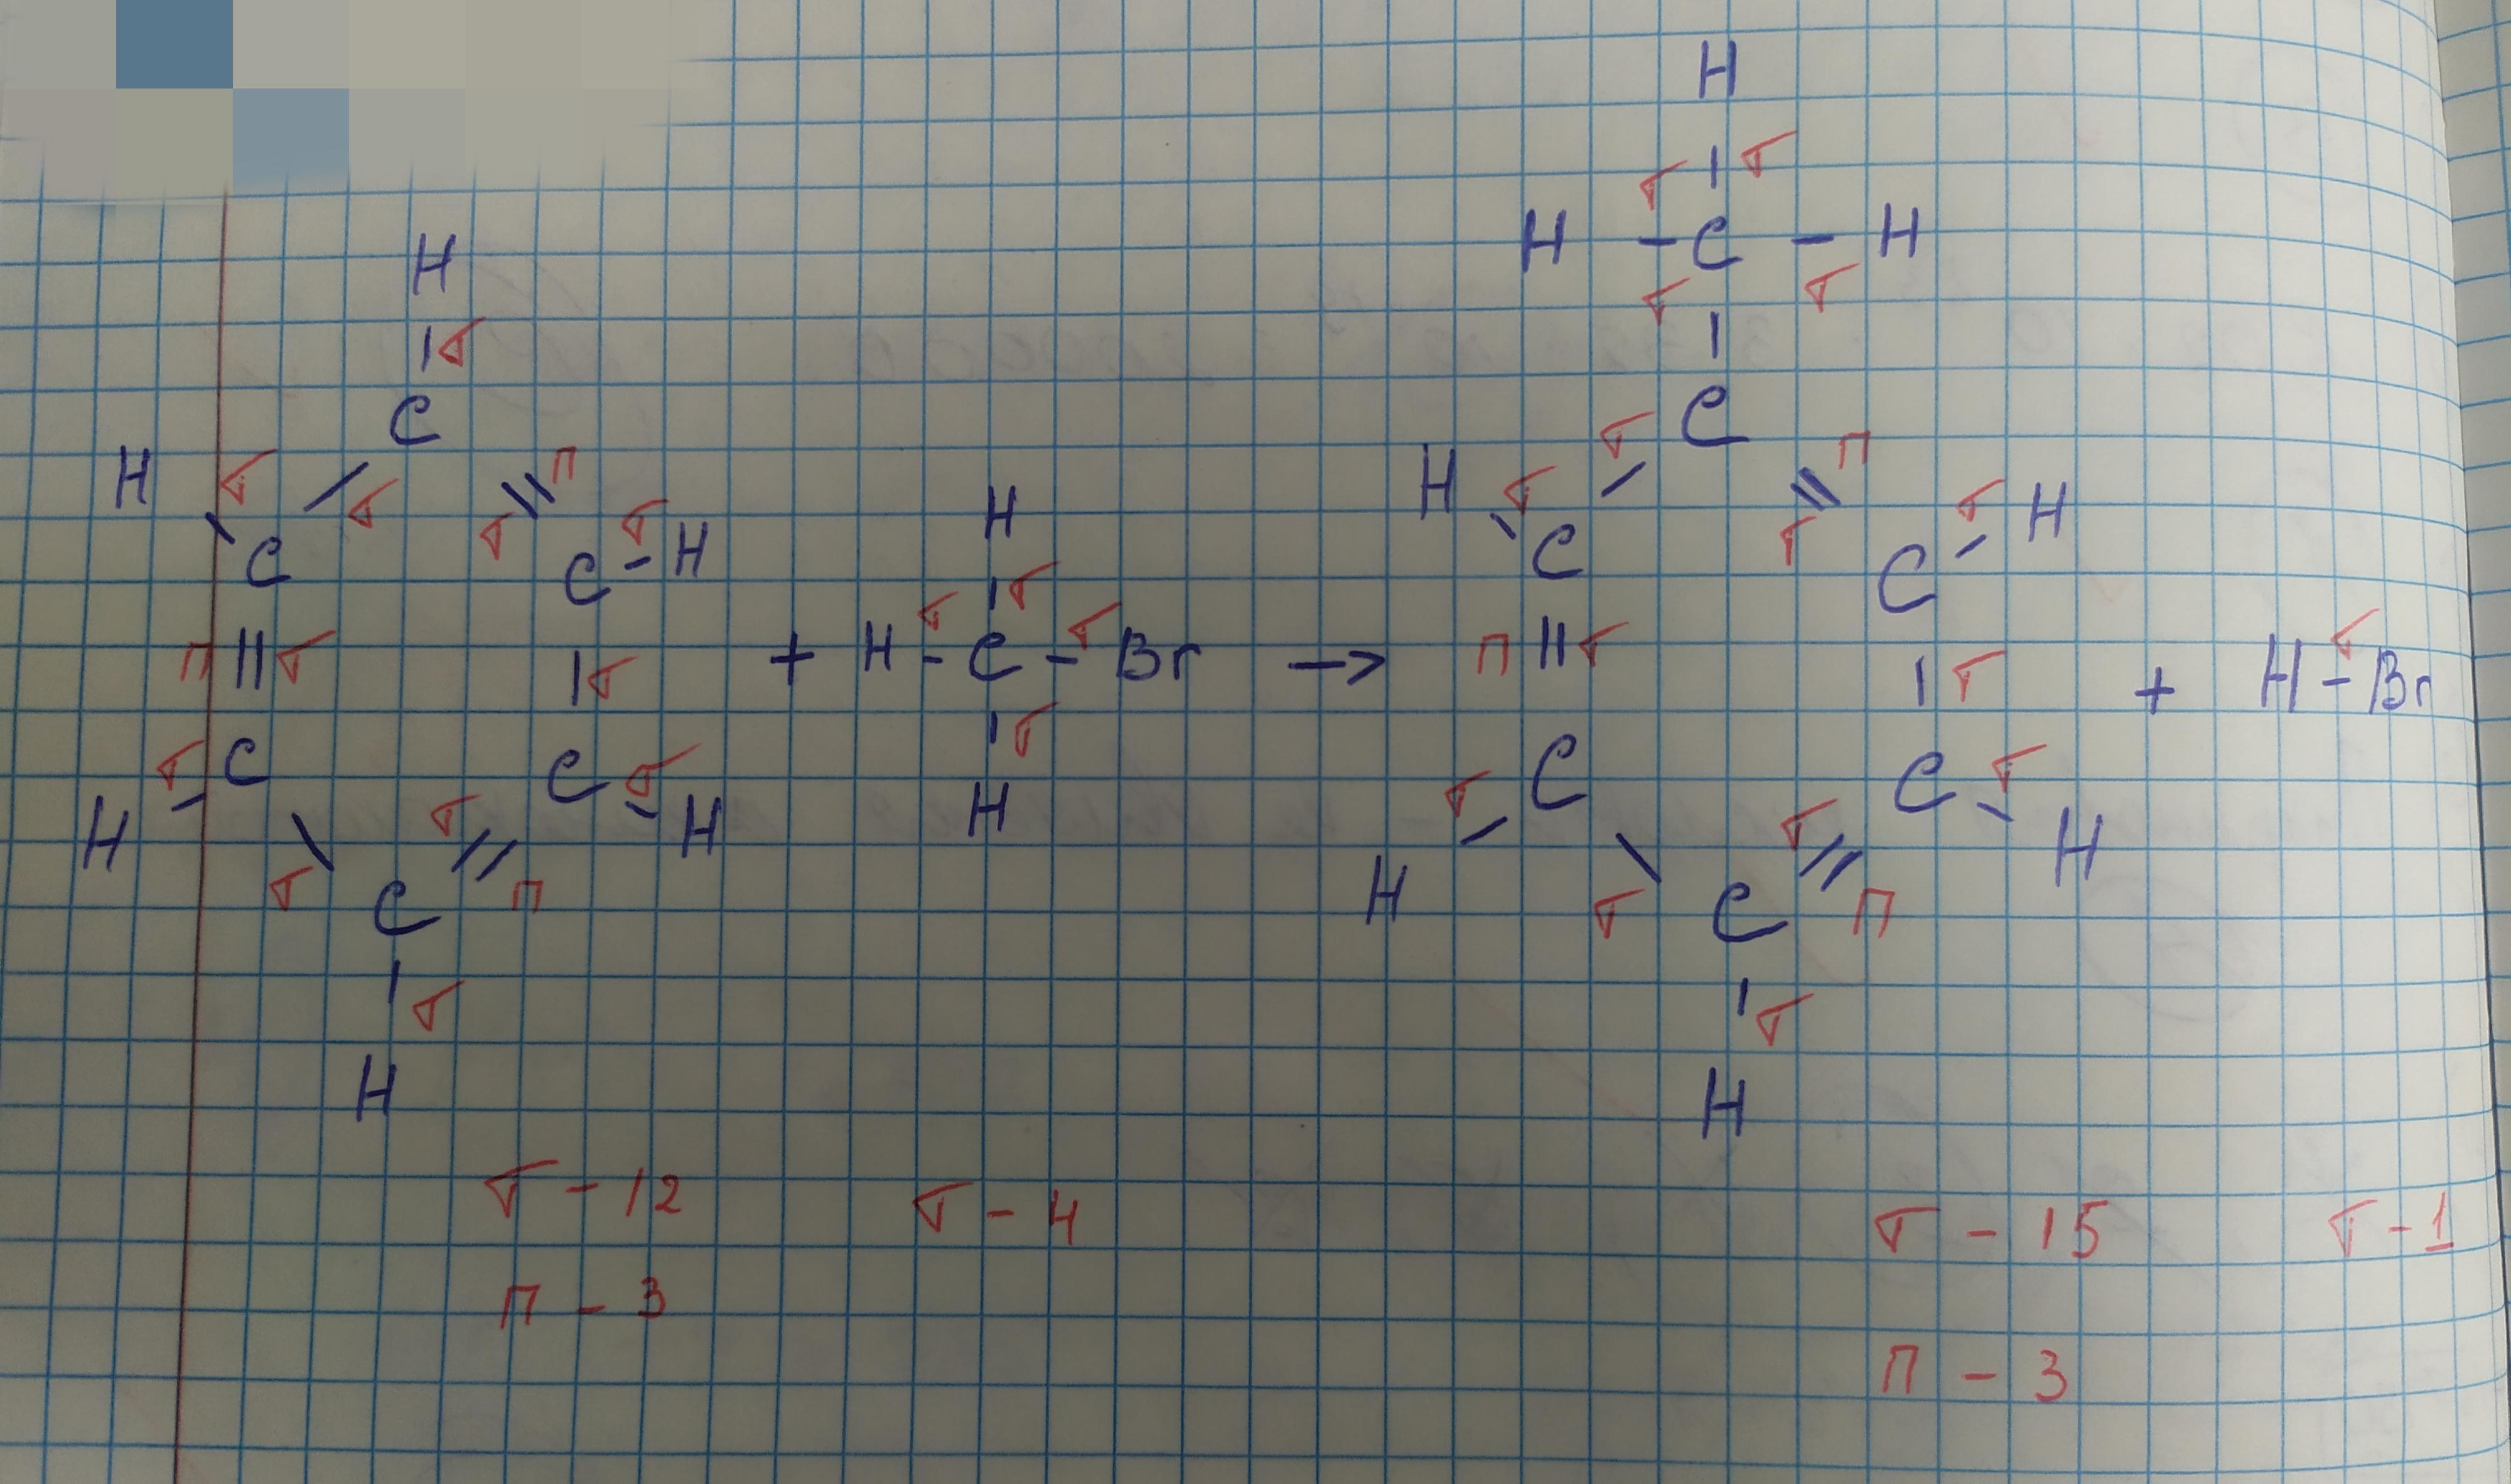 H
σ
σ
H - C - H
σ
σ
H
σ
C
C
H
σ
σ
П
σ
σ
H
C
C - H
H
σ
σ
C
П
σ
σ
H
C
П σ
σ
+
H
σ
σ
H - C - Br
σ
σ
H
→
П σ
σ
+
σ
H - Br
σ
C
C
σ
H
H
σ
σ
П
C
σ
H
σ
C
C
σ
H
H
σ
σ
П
C
σ
H
σ - 12
σ - 4
σ - 15
σ - 1
П - 3
П - 3